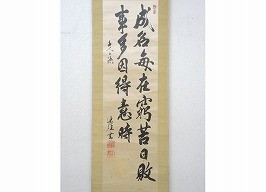 成名每在窮苦日敗
事多因得意時